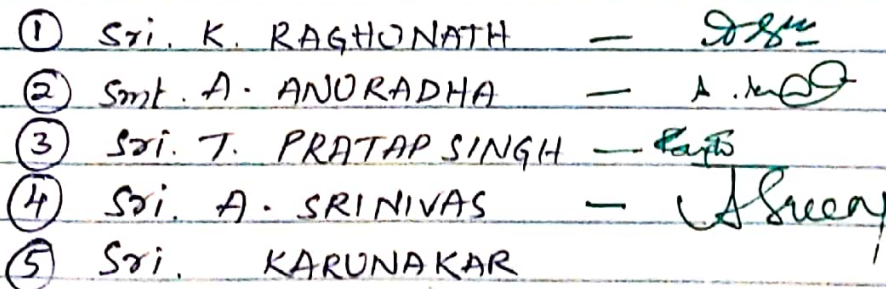 ① Sri. K. RAGHUNATH —
② Smt. A. ANURADHA —
③ Sri. T. PRATAP SINGH —
④ Sri. A. SRINIVAS —
⑤ Sri. KARUNAKAR